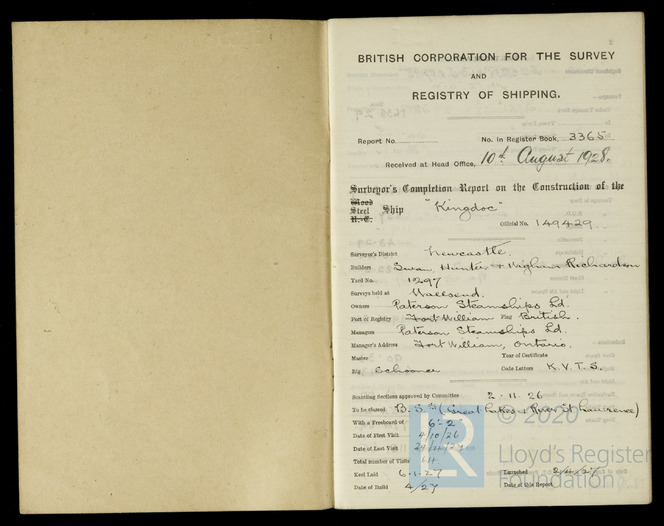 BRITISH CORPORATION FOR THE SURVEY
AND
REGISTRY OF SHIPPING.
Report No. No. in Register Book, 3365
Received at Head Office, 10th August 1928.
Surveyor's Completion Report on the Construction of the
Wood
Steel Ship "Kingdoc"
Official No. 149429
Surveyor's District Newcastle.
Builders Swan Hunter & Wigham Richardson
Yard No. 1297
Surveys held at Wallsend.
Owners Paterson Steamships Ld.
Port of Registry Fort William Flag British.
Managers Paterson Steamships Ld.
Manager's Address Fort William, Ontario.
Master Year of Certificate
Rig Schooner Code Letters K.V.T.S.
Scantling Sections approved by Committee 2.11.26
To be classed B.S* (Great Lakes & River St Lawrence)
With a Freeboard of 6'-2"
Date of First Visit 4/10/26
Date of Last Visit
Total number of Visits
Keel Laid 6.1.27 Launched
Date of Build 4/27 Date of this Report
© 2020
LR
Lloyd's Register
Foundation